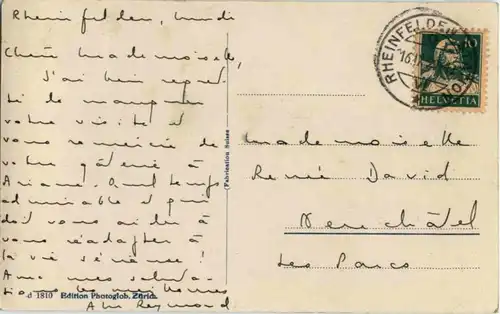 Rheinfelden, lundi
Chère Mademoiselle,
J'ai bien regret-
té de manquer
votre visite et
vous remercie de
votre gâterie à
Ariane. Quel temps
admirable et qui
doit vous aider à
vous réadapter à
la vie sérieuse !
Avec mes saluta-
tions les meilleures
Reymond
1810 Edition Photoglob, Zürich.
(Fabrication Suisse)
RHEINFELDEN
10
HELVETIA
Mademoiselle
Renée David
Neuchâtel
Les Parcs